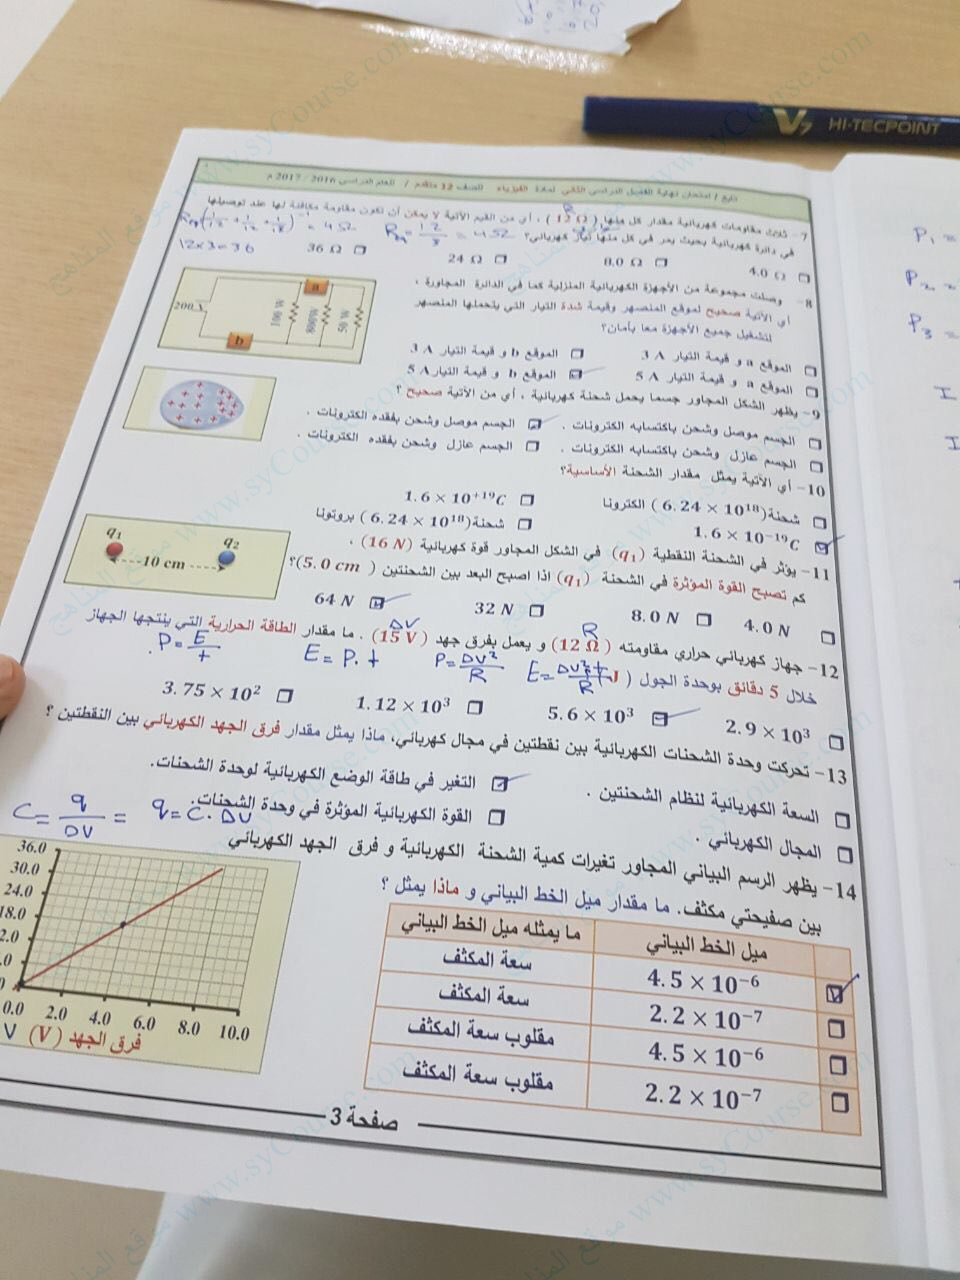 V7 HI-TECPOINT
تابع / امتحان نهاية الفصل الدراسي الثاني لمادة الفيزياء للصف 12 متقدم / للعام الدراسي 2016 / 2017 م
7- ثلاث مقاومات كهربائية مقدار كل منها (12 Ω) ، أي من القيم الآتية لا يمكن أن تكون مقاومة مكافئة لها عند توصيلها
في دائرة كهربائية بحيث يمر في كل منها تيار كهربائي؟
4.0 Ω
8.0 Ω
24 Ω
36 Ω
12x3=36
8- وصلت مجموعة من الأجهزة الكهربائية المنزلية كما في الدائرة المجاورة ،
أي الآتية صحيح لموقع المنصهر وقيمة شدة التيار التي يتحملها المنصهر
لتشغيل جميع الأجهزة معا بأمان؟
الموقع a و قيمة التيار 3 A
الموقع b و قيمة التيار 3 A
الموقع a و قيمة التيار 5 A
الموقع b و قيمة التيار 5 A
a
b
100 W
800W
50 W
9- يظهر الشكل المجاور جسما يحمل شحنة كهربائية ، أي من الآتية صحيح ؟
الجسم موصل وشحن باكتسابه الكترونات .
الجسم موصل وشحن بفقده الكترونات .
الجسم عازل وشحن باكتسابه الكترونات .
الجسم عازل وشحن بفقده الكترونات .
10- أي الآتية يمثل مقدار الشحنة الأساسية؟
شحنة (6.24 × 10¹⁸) الكترونا
1.6 × 10⁺¹⁹C
1.6 × 10⁻¹⁹C
شحنة (6.24 × 10¹⁸) بروتونا
11- يؤثر في الشحنة النقطية (q₁) في الشكل المجاور قوة كهربائية (16 N) ،
كم تصبح القوة المؤثرة في الشحنة (q₁) اذا اصبح البعد بين الشحنتين (5.0 cm)؟
q₁
q₂
10 cm
4.0 N
8.0 N
32 N
64 N
12- جهاز كهربائي حراري مقاومته (12 Ω) و يعمل بفرق جهد (15 V) . ما مقدار الطاقة الحرارية التي ينتجها الجهاز
خلال 5 دقائق بوحدة الجول (J
E = P.t
P = ΔV²/R
P = E/t
2.9 × 10³
5.6 × 10³
1.12 × 10³
3.75 × 10²
13- تحركت وحدة الشحنات الكهربائية بين نقطتين في مجال كهربائي، ماذا يمثل مقدار فرق الجهد الكهربائي بين النقطتين ؟
السعة الكهربائية لنظام الشحنتين .
التغير في طاقة الوضع الكهربائية لوحدة الشحنات.
المجال الكهربائي .
القوة الكهربائية المؤثرة في وحدة الشحنات.
C = q/ΔV = q = C.ΔV
14- يظهر الرسم البياني المجاور تغيرات كمية الشحنة الكهربائية و فرق الجهد الكهربائي
بين صفيحتي مكثف. ما مقدار ميل الخط البياني و ماذا يمثل ؟
ميل الخط البياني
ما يمثله ميل الخط البياني
4.5 × 10⁻⁶
سعة المكثف
2.2 × 10⁻⁷
سعة المكثف
4.5 × 10⁻⁶
مقلوب سعة المكثف
2.2 × 10⁻⁷
مقلوب سعة المكثف
36.0
30.0
24.0
18.0
0.0 2.0 4.0 6.0 8.0 10.0
فرق الجهد (V)
V
صفحة 3
P₁ =
P₂ =
P₃ =
I
I
موقع المناهج www.syCourse.com